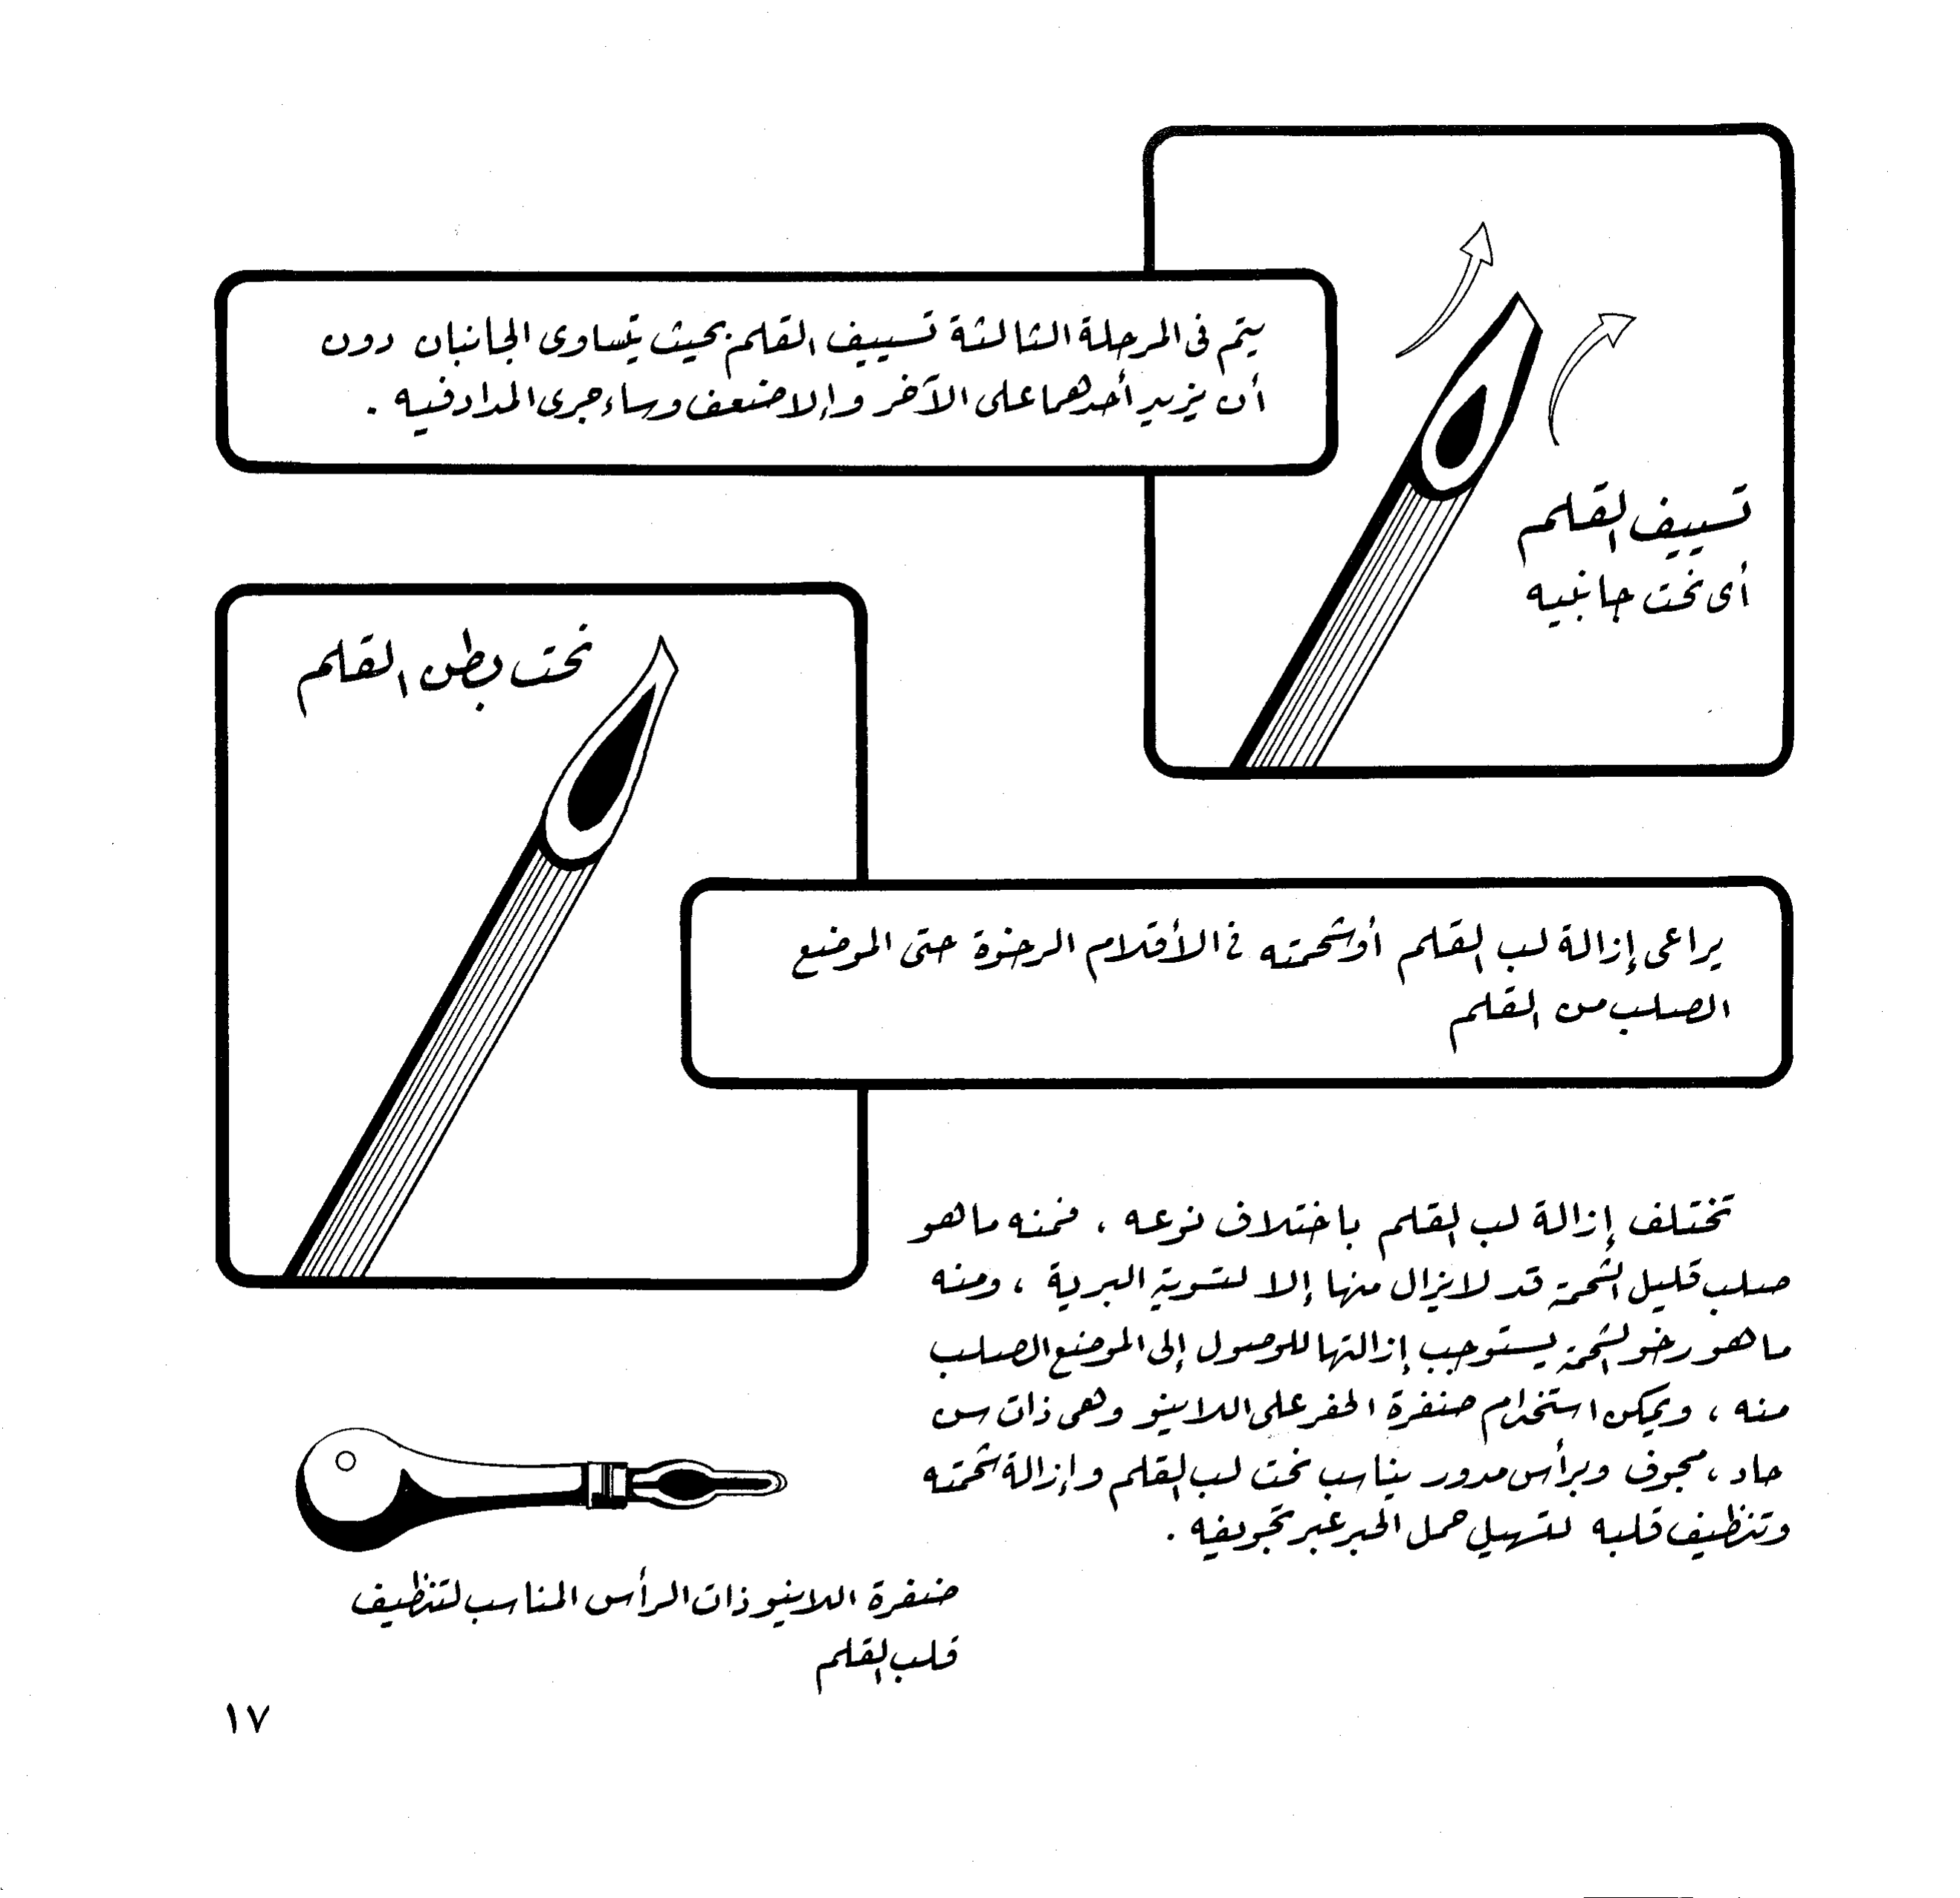 يتم فى المرحلة الثالثة تسييف القلم بحيث يتساوى الجانبان دون
أن يزيد أحدهما على الآخر وإلا ضعف وساء جرى المداد فيه .
تسييف القلم
أى نحت جانبيه
نحت بطن القلم
يراعى إزالة لب القلم أو شحمته فى الأقلام الرخوة حتى الموضع
الصلب من القلم
تختلف إزالة لب القلم باختلاف نوعه ، فمنه ما هو
صلب قليل الشحمة قد لا يزال منها إلا لتسوية البرية ، ومنه
ما هو رخو الشحمة يستوجب إزالتها للوصول إلى الموضع الصلب
منه ، ويمكن استخدام ضفرة الحفر على اللاينو وهى ذات سن
حاد ، مجوف وبرأس مدور يناسب نحت لب القلم وإزالة شحمته
وتنظيف قلبه لتسهيل حمل الحبر عبر تجويفه .
ضفرة اللاينو ذات الرأس المناسب لتنظيف
قلب القلم
١٧